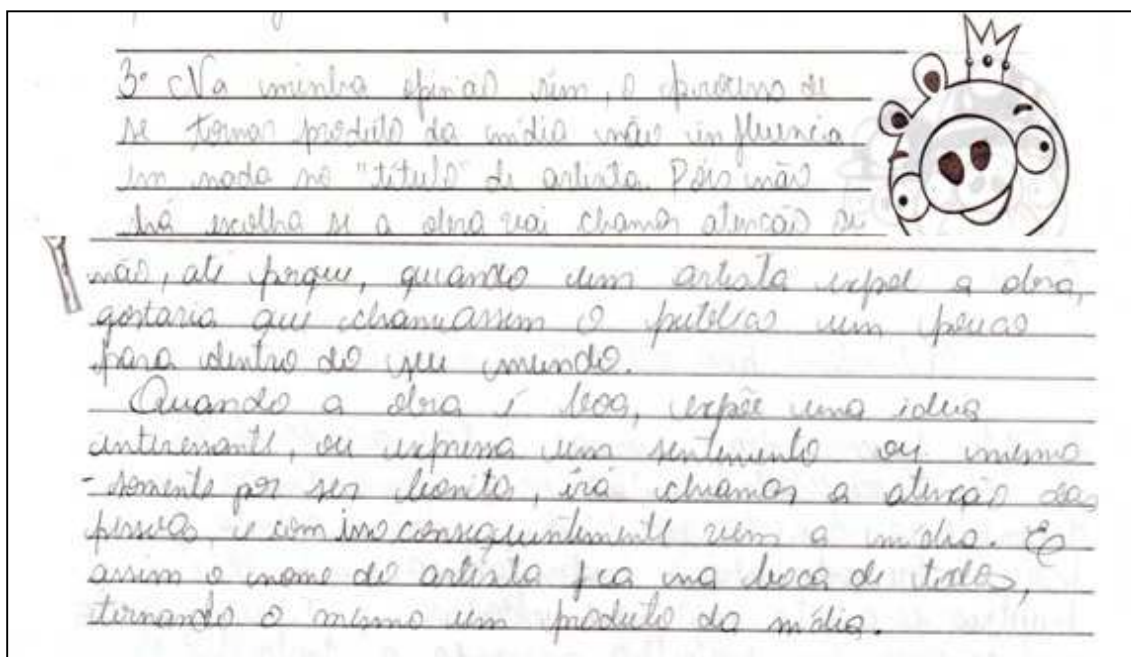 3º Na minha opinião sim, o processo de
se tornar produto da mídia não influencia
em nada no "título" de artista. Pois não
há escolha se a obra vai chamar atenção se
não, até porque, quando um artista expõe a obra,
gostaria que chamassem o publico um pouco
para dentro do seu mundo.
Quando a obra é boa, expõe uma ideia
interessante, ou expressa um sentimento ou mesmo
somente por ser bonita, irá chamar a atenção das
pessoas, e com isso consequentemente vem a mídia. E
assim o nome do artista fica na boca de todos,
tornando o mesmo um produto da mídia.